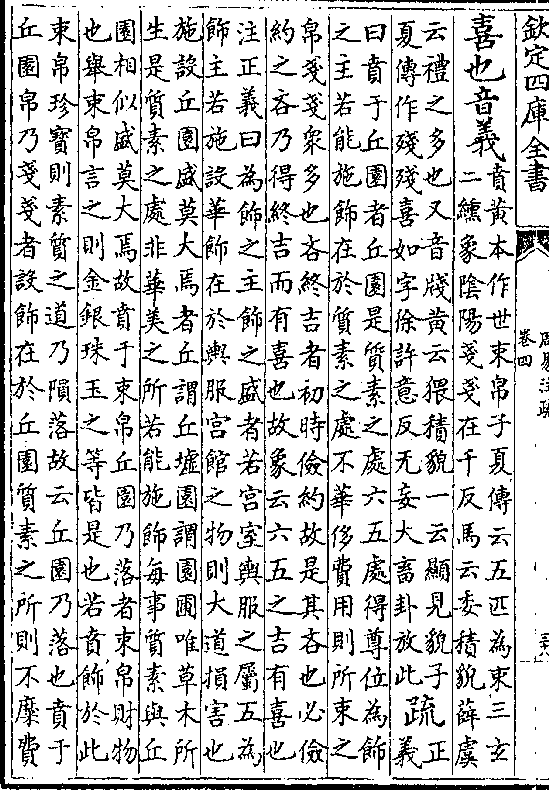 欽定四庫全書
周易注疏
卷四
喜也音義
賁黃本作世束帛子夏傳云五匹為束三玄
二纁象陰陽戔戔在千反馬云委積貌薛虞
云禮之多也又音牋黃云猥積貌一云顯見貌子
夏傳作殘殘喜如字徐許意反无妄大畜卦放此
疏
正
義
曰賁于丘園者丘園是質素之處六五處得尊位為飾
之主若能施飾在於質素之處不華侈費用則所束之
帛戔戔衆多也吝終吉者初時儉約故是其吝也必儉
約之吝乃得終吉而有喜也故象云六五之吉有喜也
注正義曰為飾之主飾之盛者若宮室輿服之屬五為
飾主若施設華飾在於輿服宮館之物則大道損害也
施設丘園盛莫大焉者丘謂丘墟園謂園圃唯草木所
生是質素之處非華美之所若能施飾每事質素與丘
園相似盛莫大焉故賁于束帛丘園乃落者束帛財物
也舉束帛言之則金銀珠玉之等皆是也若賁飾於此
束帛珍寶則素質之道乃隕落故云丘園乃落也賁于
丘園帛乃戔戔者設飾在於丘園質素之所則不糜費